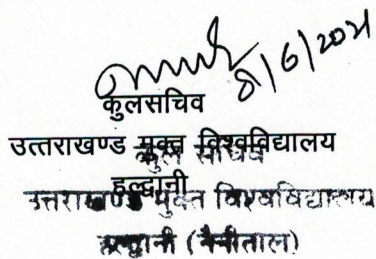 8/6/2021
कुलसचिव
उत्तराखण्ड मुक्त विश्वविद्यालय
कुल सचिव
हल्द्वानी
उत्तराखण्ड मुक्त विश्वविद्यालय
हल्द्वानी (नैनीताल)